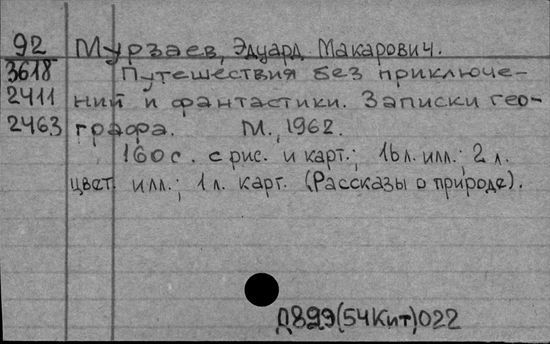 92 Мурзаев, Эдуард Макарович.
3618 Путешествия без приключе-
2411 ний и фантастики. Записки гео-
2463 графа. М., 1962.
160 с. с рис. и карт.; 16 л. илл.; 2 л.
цвет. илл.; 1 л. карт. (Рассказы о природе).
Д899(54Кит)022